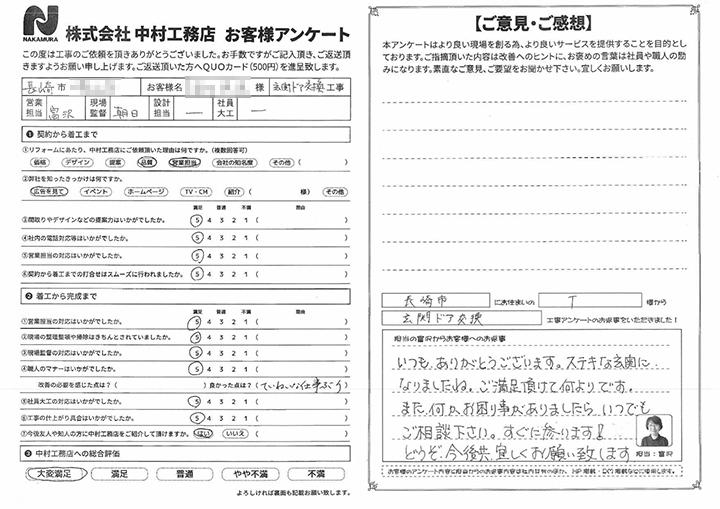 NAKAMURA
株式会社 中村工務店 お客様アンケート
この度は工事のご依頼を頂きありがとうございました。お手数ですがご記入頂き、ご返送頂
きますようお願い申し上げます。ご返送頂いた方へQUOカード(500円)を進呈致します。
長崎 市 お客様名 様 玄関ドア交換 工事
営業担当 富沢 現場監督 朝日 設計担当 ー 社員大工 ー
❶ 契約から着工まで
①リフォームにあたり、中村工務店にご依頼頂いた理由は何ですか。(複数回答可)
価格 デザイン 提案 品質 営業担当 会社の知名度 その他 ( )
②弊社を知ったきっかけは何ですか。
広告を見て イベント ホームページ TV・CM 紹介 ( 様) その他
満足 普通 不満 理由
③間取りやデザインなどの提案力はいかがでしたか。 5 4 3 2 1 ( )
④社内の電話対応等はいかがでしたか。 5 4 3 2 1 ( )
⑤営業担当の対応はいかがでしたか。 5 4 3 2 1 ( )
⑥契約から着工までの打合せはスムーズに行われましたか。 5 4 3 2 1 ( )
❷ 着工から完成まで
満足 普通 不満 理由
①営業担当の対応はいかがでしたか。 5 4 3 2 1 ( )
②現場の整理整頓や掃除はきちんとされていましたか。 5 4 3 2 1 ( )
③現場監督の対応はいかがでしたか。 5 4 3 2 1 ( )
④職人のマナーはいかがでしたか。 5 4 3 2 1 ( )
改善の必要を感じた点は?( ) 良かった点は?( ていねいな仕事ぶり )
⑤社員大工の対応はいかがでしたか。 5 4 3 2 1 ( )
⑥工事の仕上がり具合はいかがでしたか。 5 4 3 2 1 ( )
⑦今後友人や知人の方に中村工務店をご紹介して頂けますか。 はい いいえ ( )
❸ 中村工務店への総合評価
大変満足 満足 普通 やや不満 不満
よろしければ裏面も記載お願い致します。
【ご意見・ご感想】
本アンケートはより良い現場を創る為、より良いサービスを提供することを目的とし
ております。ご指摘頂いた内容は改善へのヒントに、お褒めの言葉は社員や職人の励
みになります。素直なご意見、ご要望をお聞かせ下さい。宜しくお願いします。
長崎市 にお住まいの T 様から
玄関ドア交換 工事アンケートのお返事をいただきました!
担当の富沢からお客様へのお返事
いつも ありがとうございます。ステキな玄関に
なりましたね。ご満足頂けて何よりです。
また何か、お困り事がありましたら いつでも
ご相談下さい。すぐに参ります!
どうぞ、今後共、宜しくお願い致します
担当:富沢